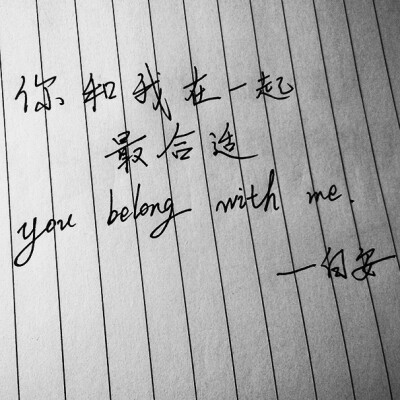 你和我在一起
最合适
you belong with me.
一白安